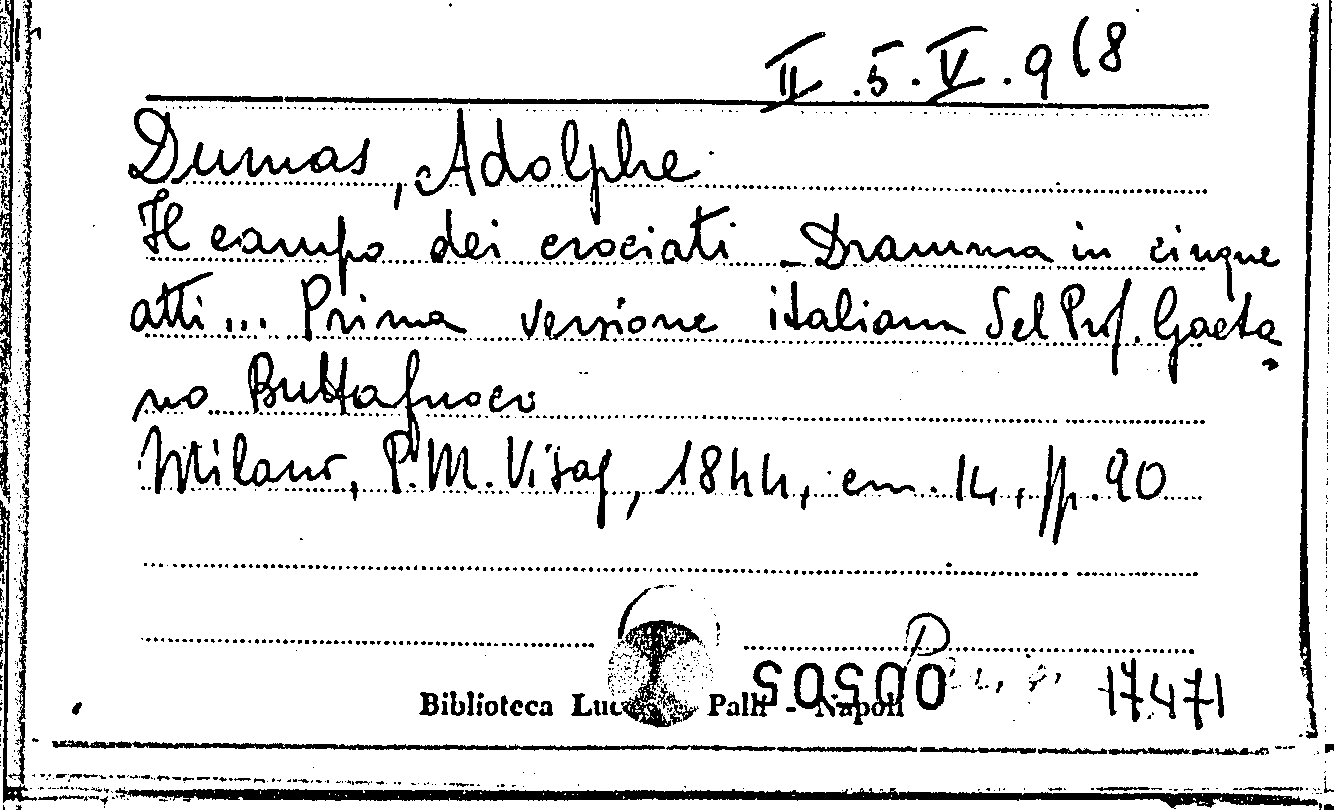 II.5.V.9(8
Dumas, Adolphe
Il campo dei crociati - Dramma in cinque
atti... Prima versione italiana del Prof. Gaeta-
no Buttafuoco
Milano, P. M. Visaj, 1844, em. 14, pp. 90
Biblioteca Palli - Napoli
00505
17471